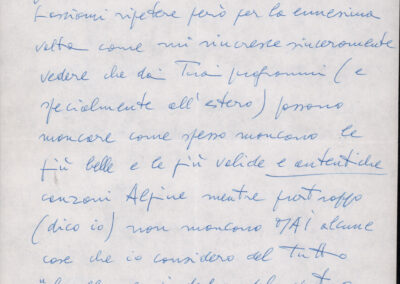 Lasciami ripetere però per la ennesima
volta come mi rincresce sinceramente
vedere che dai Tuoi programmi (e
specialmente all'estero) possono
mancare come spesso mancano le
più belle e le più valide e autentiche
canzoni Alpine mentre purtroppo
(dico io) non mancano MAI alcune
cose che io considero del tutto